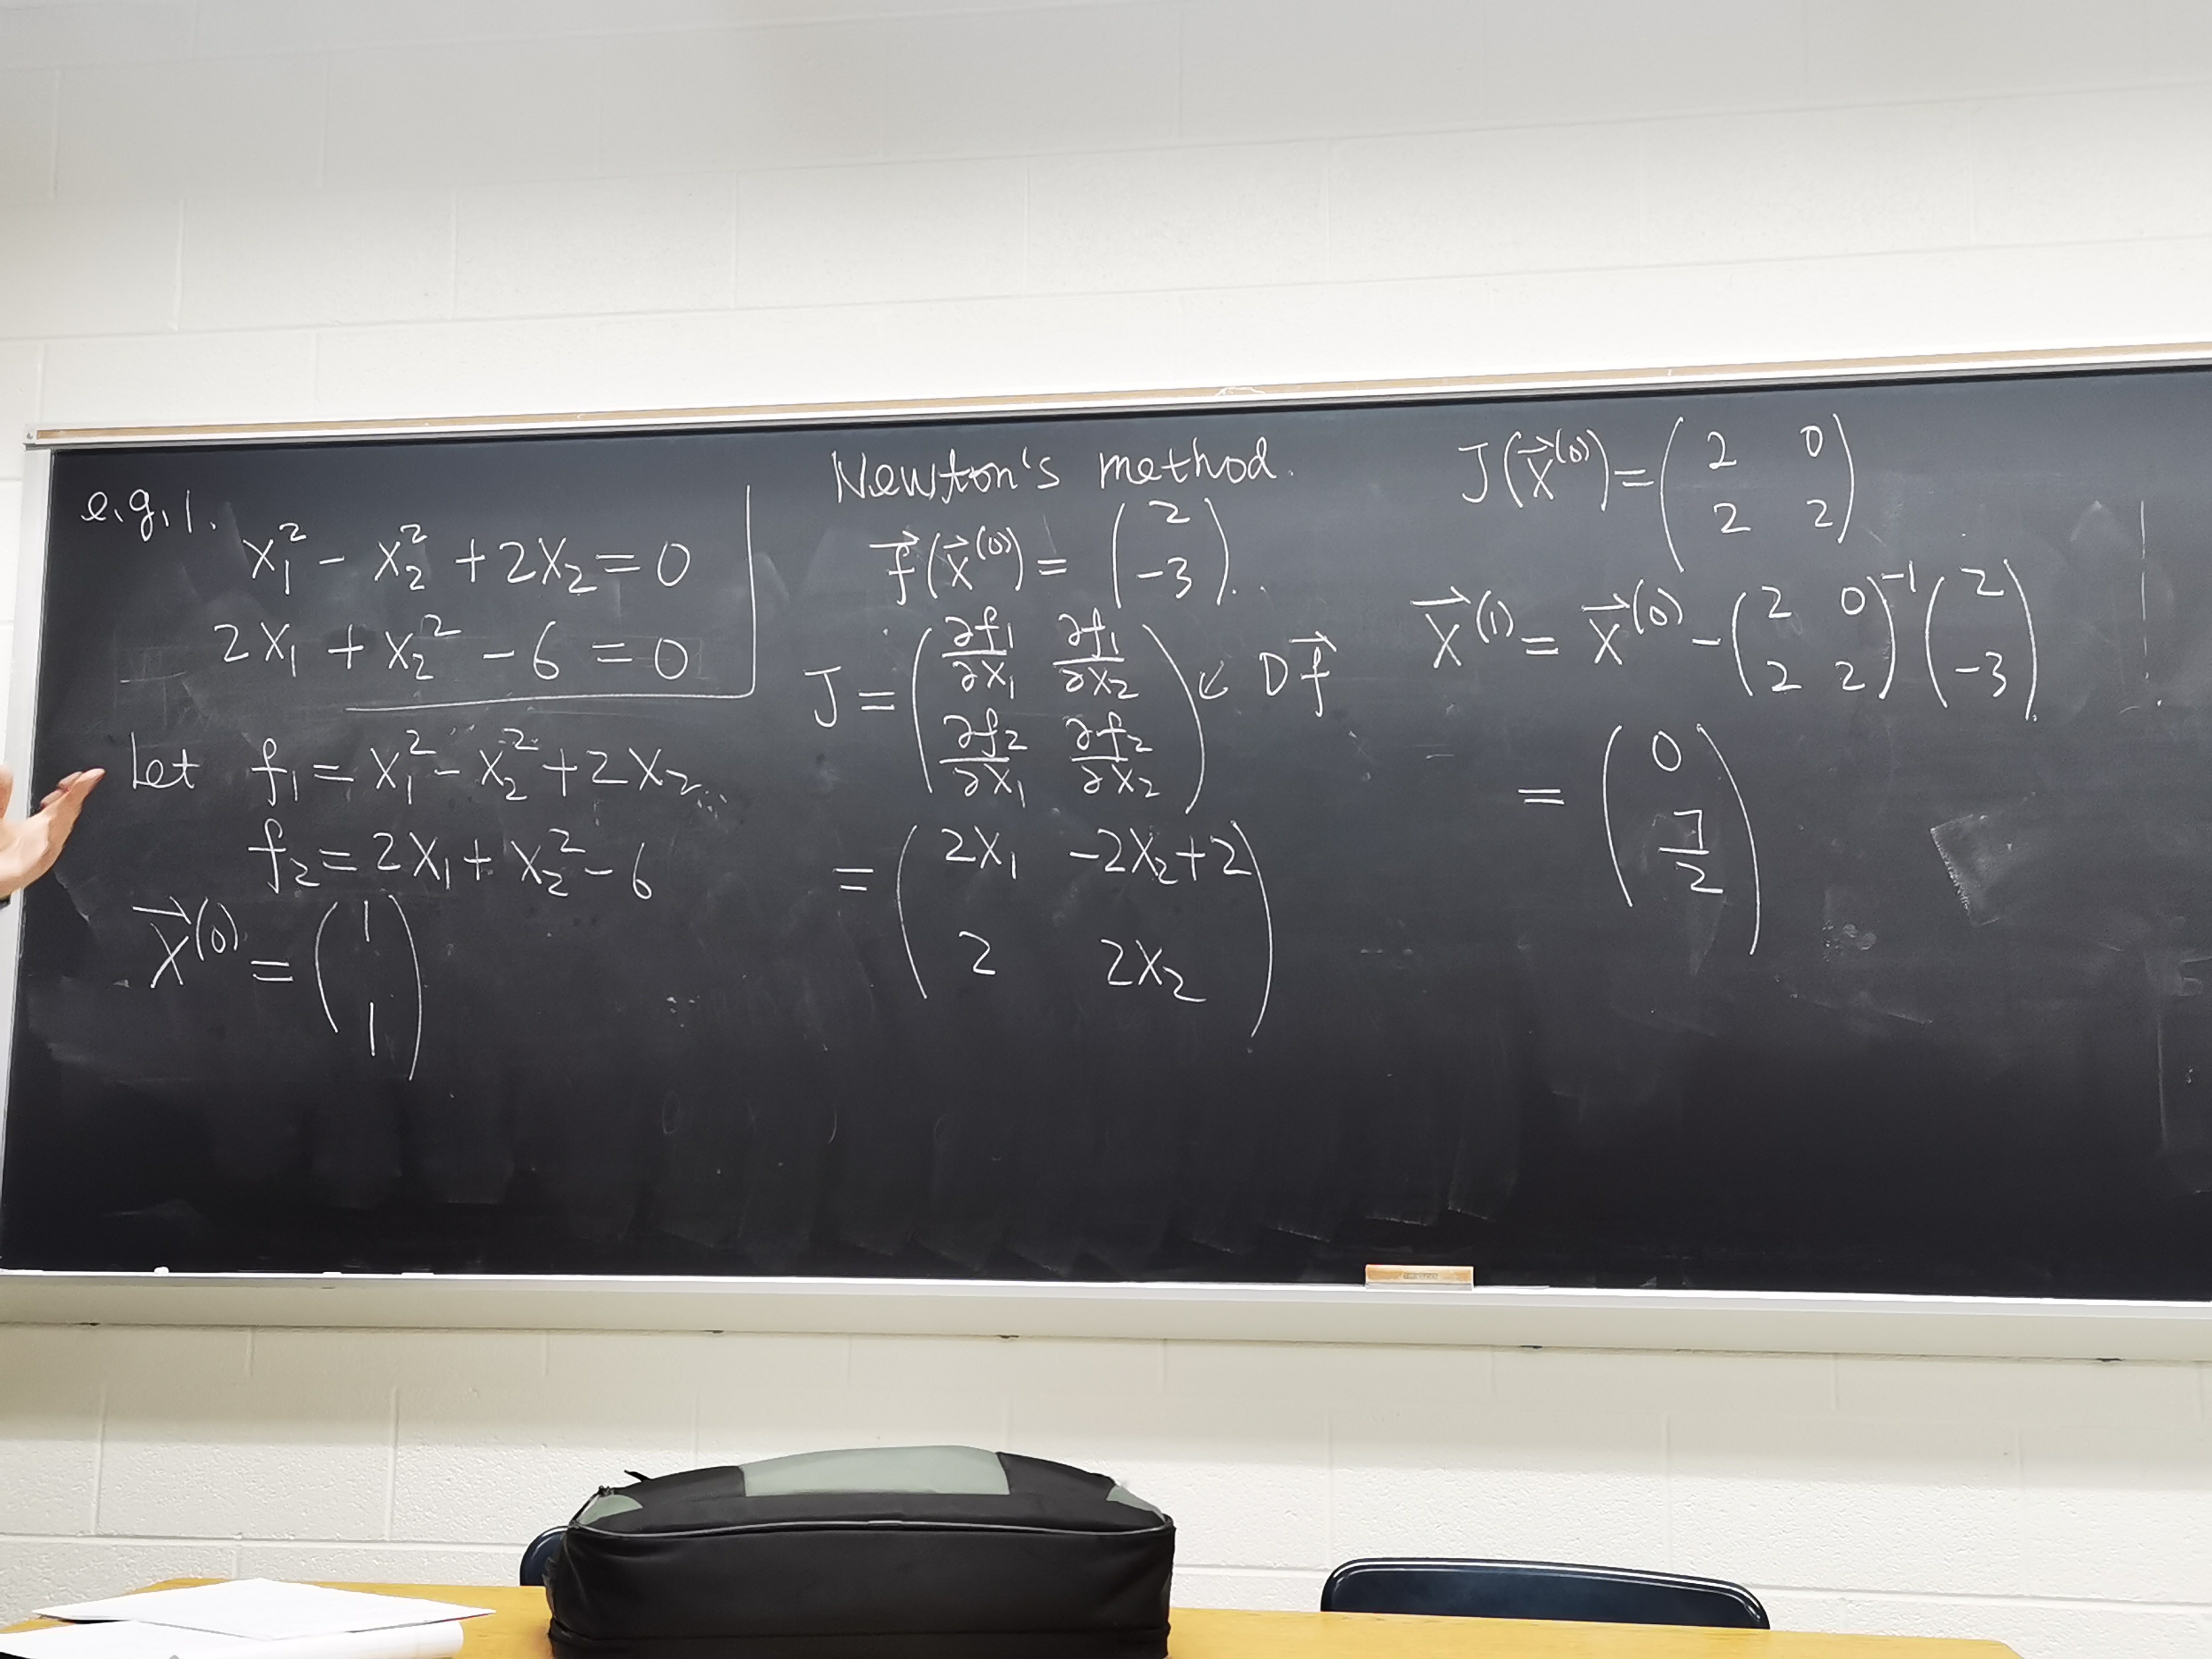 e.g.1.
x₁² - x₂² + 2x₂ = 0
2x₁ + x₂² - 6 = 0
Let f₁ = x₁² - x₂² + 2x₂
f₂ = 2x₁ + x₂² - 6
x⃗⁽⁰⁾ = (1
1)
Newton's method.
f⃗(x⃗⁽⁰⁾) = (2
-3).
J = (∂f₁/∂x₁ ∂f₁/∂x₂
∂f₂/∂x₁ ∂f₂/∂x₂) ↙ Df⃗
= (2x₁ -2x₂+2
2 2x₂)
J(x⃗⁽⁰⁾) = (2 0
2 2)
x⃗⁽¹⁾ = x⃗⁽⁰⁾ - (2 0
2 2)⁻¹ (2
-3)
= (0
7/2)